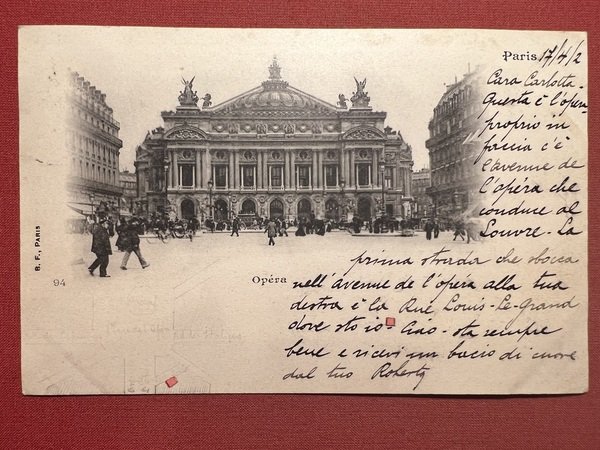 Paris 17/4/2
Cara Carlotta -
Questa è l'opéra
proprio in
faccia c'è
l'avenue de
l'opéra che
conduce al
Louvre - La
prima strada che sbocca
nell'avenue de l'opéra alla tua
destra è la Rue Louis-le-Grand
dove sto io - Ciao - sta sempre
bene e ricevi un bacio di cuore
dal tuo Roberto
Opéra
B. F., PARIS
94